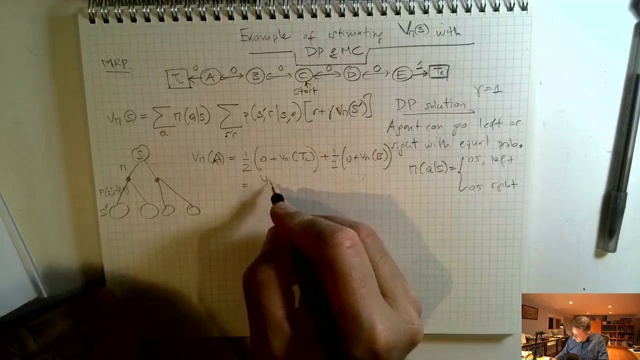 Example of estimating Vπ(s) with
DP & MC
MRP
TL ← 0 A ↔ 0 B ↔ 0 C ↔ 0 D ↔ 0 E → 1 TR
start
γ=1
Vπ(s) = Σ_a π(a|s) Σ_s'r p(s',r|s,a) [r+γVπ(s')]
DP solution
Agent can go left or
right with equal prob.
π(a|s) = { 0.5, left
0.5 right
Vπ(A) = 1/2 (0 + Vπ(TL)) + 1/2 (0+Vπ(B))
=
S
π
s'